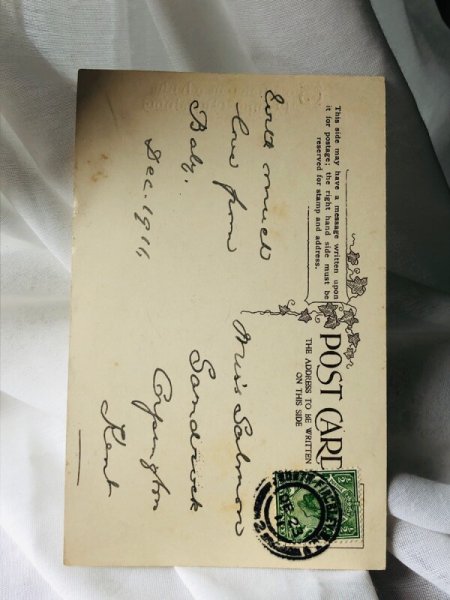 POST CARD
This side may have a message written upon
it for postage; the right hand side must be
reserved for stamp and address.
THE ADDRESS TO BE WRITTEN
ON THIS SIDE
With much
love from
Baby.
Dec. 1914
Miss Salmon
Sandrock
Orpington
Kent
NORTH FINCHLEY. N
DE 23